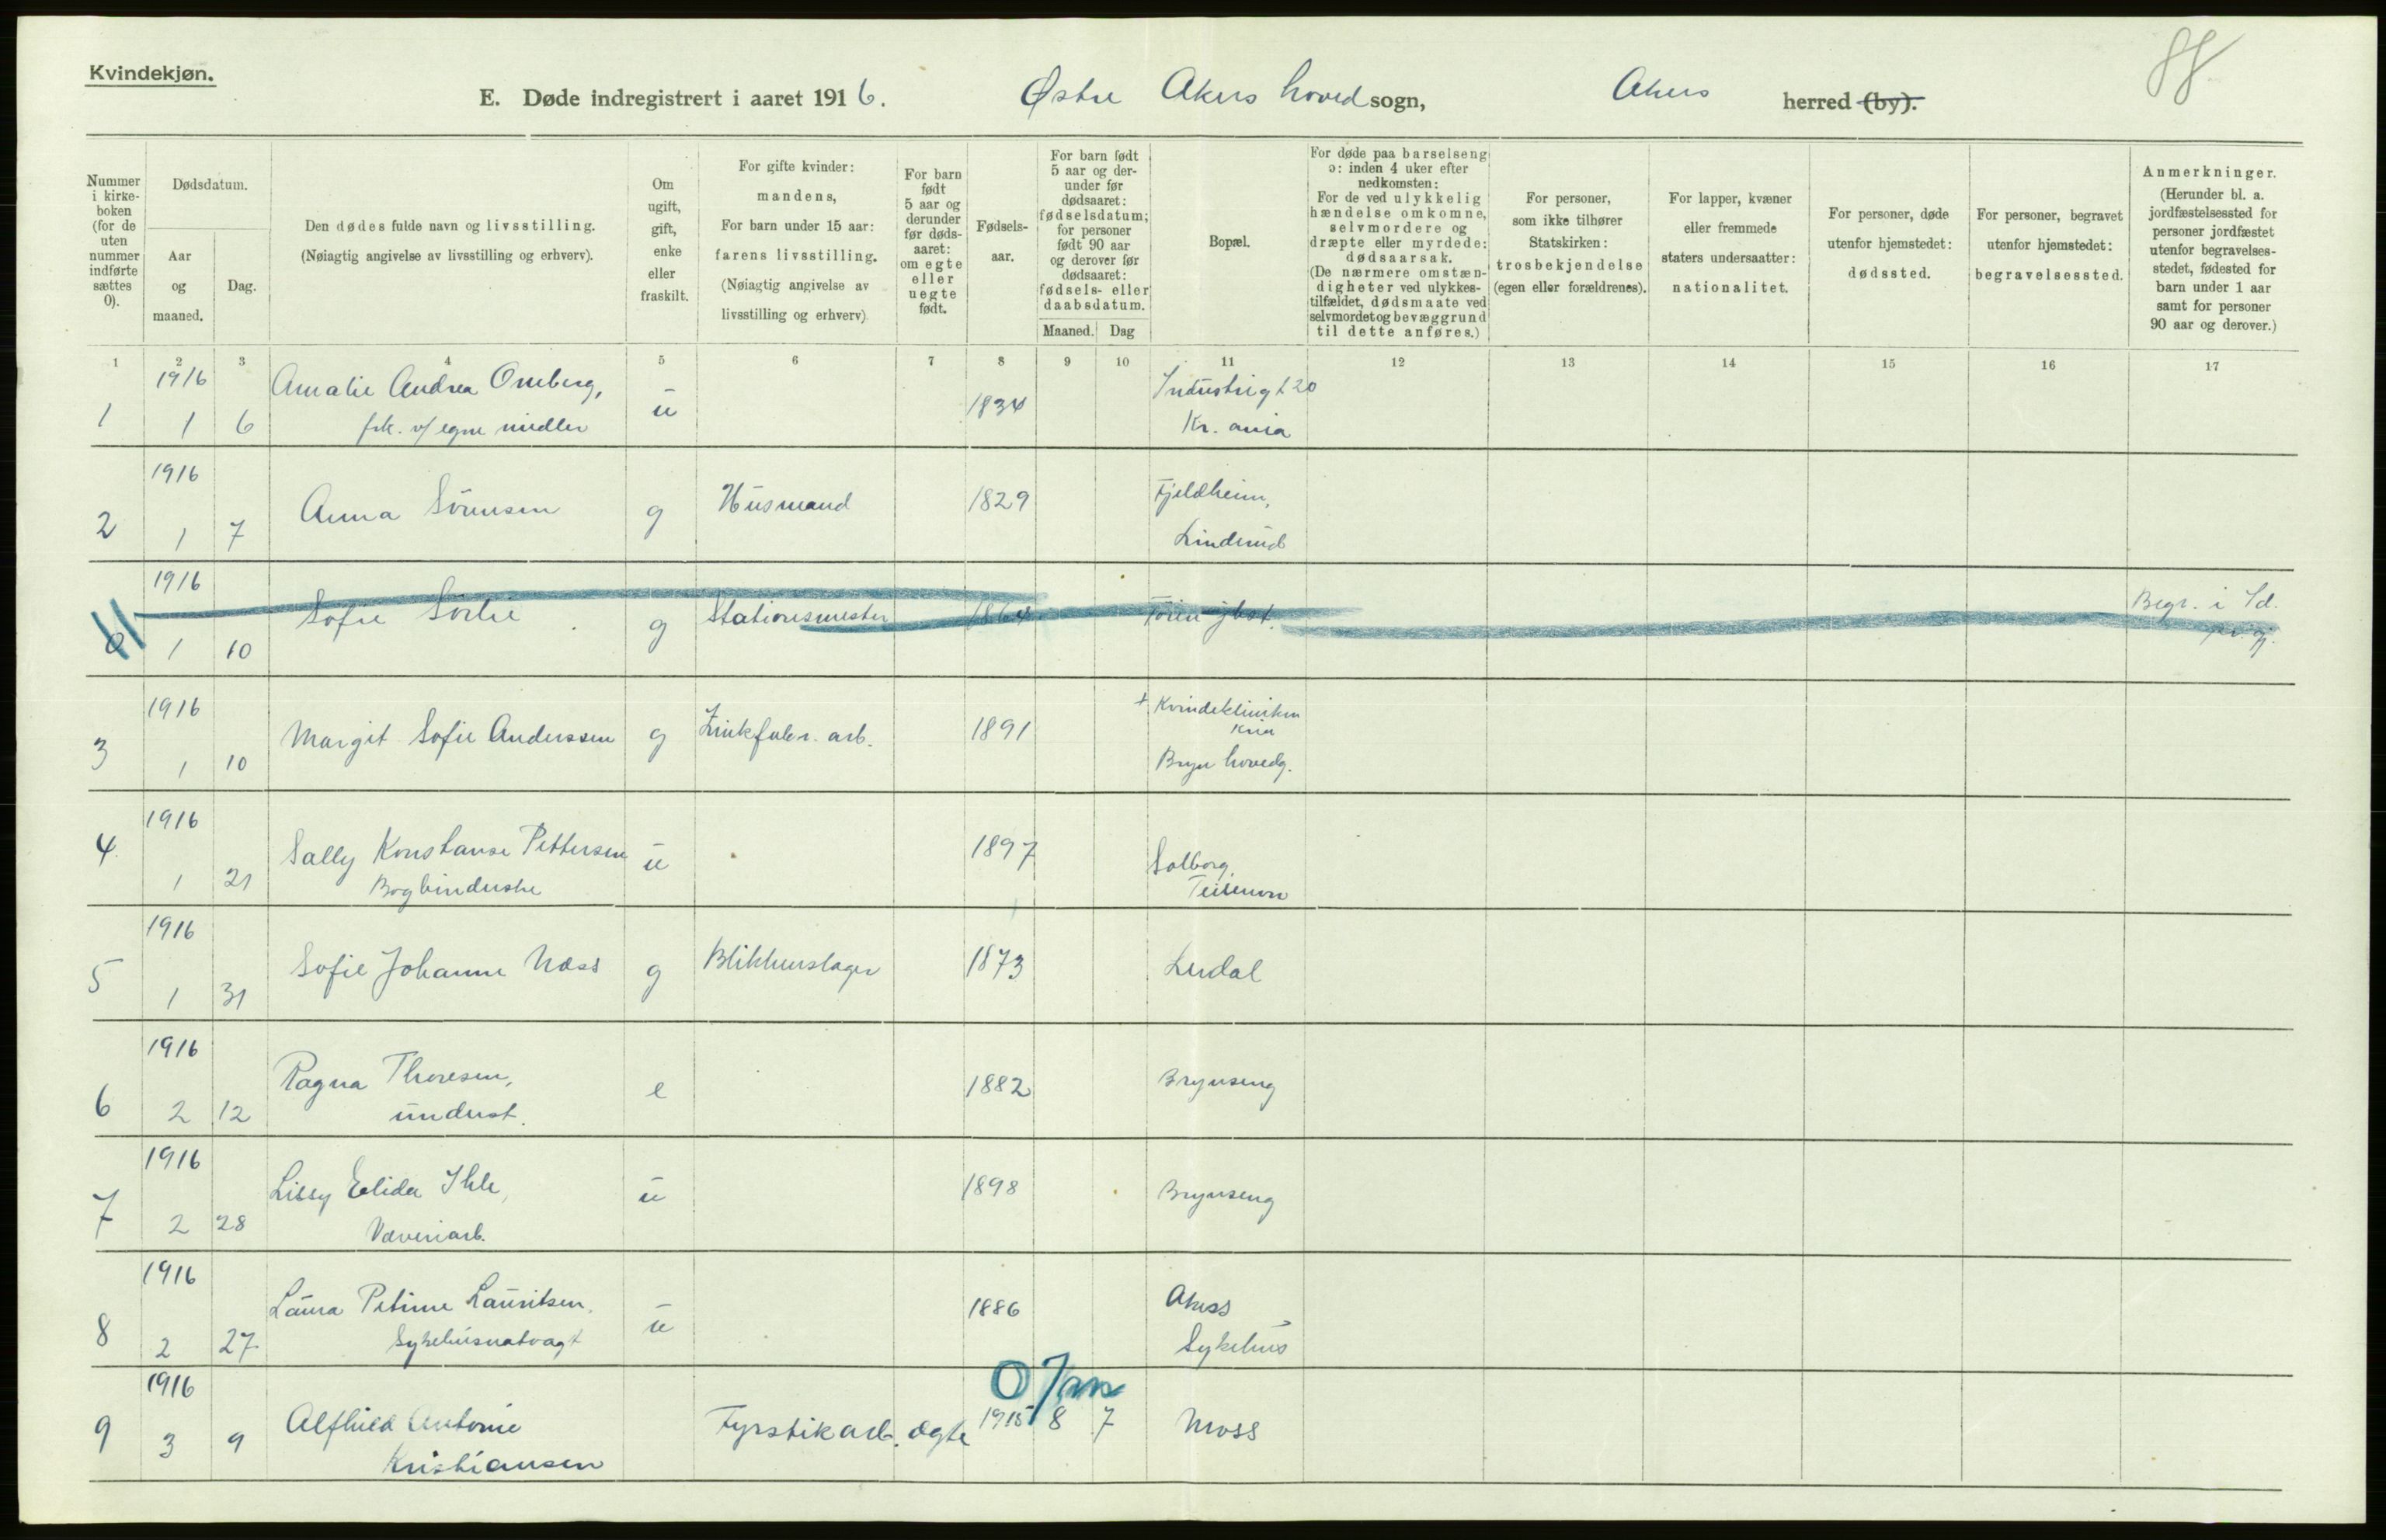 Kvindekjøn.
88
E. Døde indregistrert i aaret 1916. Østre Akers hoved sogn, Akers herred (by).
Nummer i kirke-boken (for de uten nummer indførte sættes 0).
Dødsdatum.
Aar og maaned.
Dag.
Den dødes fulde navn og livsstilling.
(Nøiagtig angivelse av livsstilling og erhverv).
Om ugift, gift, enke eller fraskilt.
For gifte kvinder: mandens,
For barn under 15 aar: farens livsstilling.
(Nøiagtig angivelse av livsstilling og erhverv)
For barn født 5 aar og derunder før døds-aaret: om egte eller uegte født.
Fødsels-aar.
For barn født 5 aar og der-under før dødsaaret: fødselsdatum; for personer født 90 aar og derover før dødsaaret: fødsels- eller daabsdatum.
Maaned. Dag
Bopæl.
For døde paa barselseng ɔ: inden 4 uker efter nedkomsten:
For de ved ulykkelig hændelse omkomne, selvmordere og dræpte eller myrdede: dødsaarsak.
(De nærmere omstæn-digheter ved ulykkes-tilfældet, dødsmaate ved selvmordet og bevæggrund til dette anføres.)
For personer, som ikke tilhører Statskirken: trosbekjendelse (egen eller forældrenes).
For lapper, kvæner eller fremmede staters undersaatter: nationalitet.
For personer, døde utenfor hjemstedet: dødssted.
For personer, begravet utenfor hjemstedet: begravelsessted.
Anmerkninger.
(Herunder bl. a. jordfæstelsessted for personer jordfæstet utenfor begravelses-stedet, fødested for barn under 1 aar samt for personer 90 aar og derover.)
1 2 3 4 5 6 7 8 9 10 11 12 13 14 15 16 17
1916 Amalie Andrea Omberg, Industrigt 20
1 1 6 frk. v/ egne midler u 1834 Kr. ania
1916 Fjeldheim,
2 1 7 Anna Sörensen g Husmand 1829 Linderud
1916 Begr. i Id.
0 1 10 Sofie Sörlie g Stationsmester 1864 Töien jbst. pr. gj.
1916 + Kvindekliniken Kria
3 1 10 Margit Sofie Anderssen g Zinkfabr. arb. 1891 Bryn hovedg.
1916
4. 1 21 Sally Konstanse Pettersen u 1897 Solborg,
Bogbinderske Teisenvn
1916
5 1 31 Sofie Johanne Næss g Blikkenslager 1873 Lerdal
1916
6 2 12 Ragna Thoresen, e 1882 Brynseng
underst.
1916
7 2 28 Lissy Elida Ihle, u 1898 Brynseng
Væveriarb.
1916
8 2 27 Laura Petrine Lauritsen, u 1886 Akers
Sykehusnatvagt Sykehus
1916 0
9 3 9 Alfhild Antonie Fyrstikarb. ægte 1915 8 7 Moss
Kristiansen